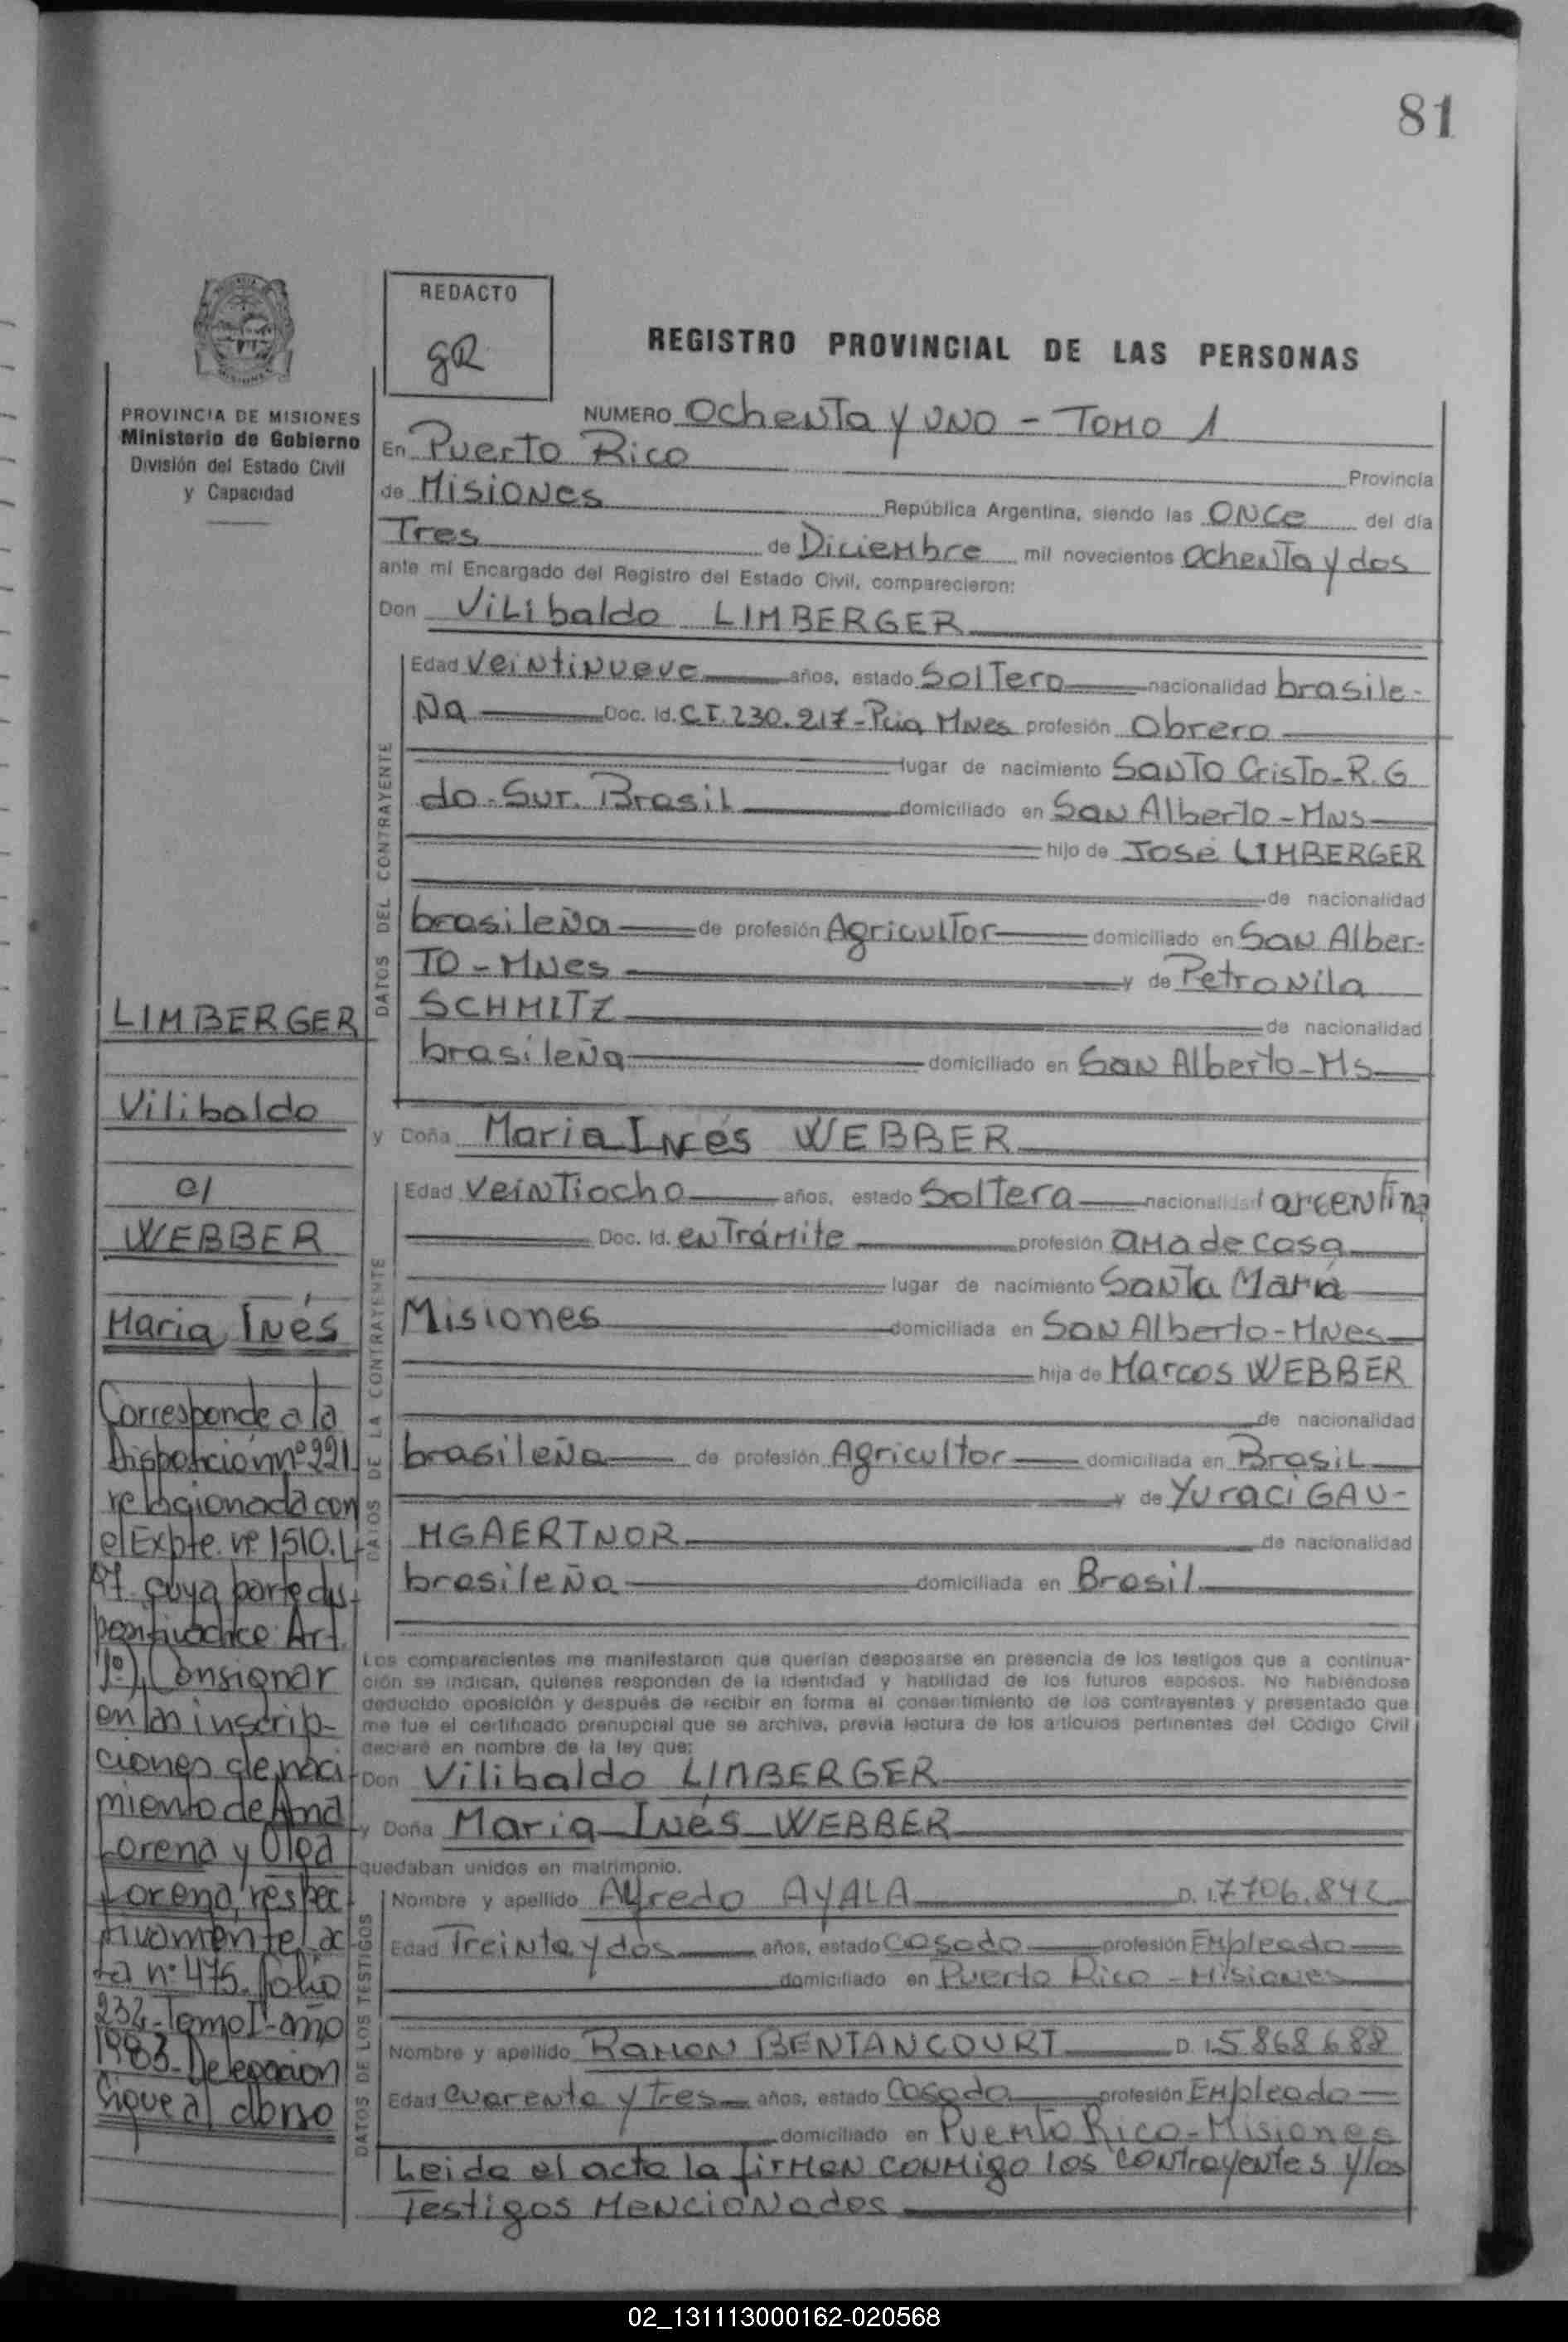 81
REDACTO
gR
REGISTRO PROVINCIAL DE LAS PERSONAS
PROVINCIA DE MISIONES
Ministerio de Gobierno
División del Estado Civil
y Capacidad
NUMERO Ochenta y uno - Tomo 1
En Puerto Rico Provincia
de Misiones República Argentina, siendo las ONCE del día
Tres de Diciembre mil novecientos ochenta y dos
ante mi Encargado del Registro del Estado Civil, comparecieron:
Don Vilibaldo LIMBERGER
DATOS DEL CONTRAYENTE
Edad veintinueve años, estado Soltero nacionalidad brasile-
ña Doc. Id. C.I. 230.217 - Pcia Mnes profesión Obrero
lugar de nacimiento Santo Cristo - R. G
do - Sur. Brasil domiciliado en San Alberto - Mns
hijo de José LIMBERGER
de nacionalidad
brasileña de profesión Agricultor domiciliado en San Alber-
to - Mnes y de Petronila
SCHMITZ de nacionalidad
brasileña domiciliado en San Alberto - Ms
y Doña Maria Inés WEBBER
DATOS DE LA CONTRAYENTE
Edad veintiocho años, estado Soltera nacionalidad argentina
Doc. Id. en Trámite profesión ama de casa
lugar de nacimiento Santa María
Misiones domiciliada en San Alberto - Mnes
hija de Marcos WEBBER
de nacionalidad
brasileña de profesión Agricultor domiciliada en Brasil
y de Yuraci GAU-
MGAERTNOR de nacionalidad
brasileña domiciliada en Brasil
Los comparecientes me manifestaron que querían desposarse en presencia de los testigos que a continua-
ción se indican, quienes responden de la identidad y habilidad de los futuros esposos. No habiéndose
deducido oposición y después de recibir en forma el consertimiento de los contrayentes y presentado que
me fue el certificado prenupcial que se archiva, previa lectura de los artículos pertinentes del Código Civil
declaré en nombre de la ley que:
Don Vilibaldo LIMBERGER
y Doña Maria Inés WEBBER
quedaban unidos en matrimonio.
DATOS DE LOS TESTIGOS
Nombre y apellido Alfredo AYALA D. I. 7706.842
Edad Treinta y dos años, estado casado profesión Empleado
domiciliado en Puerto Rico - Misiones
Nombre y apellido Ramon BENTANCOURT D. I. 5868688
Edad cuarenta y tres años, estado Casado profesión Empleado
domiciliado en Puerto Rico - Misiones
Leida el acta la firman conmigo los contrayentes y los
Testigos Mencionados
LIMBERGER
Vilibaldo
c/
WEBBER
Maria Inés
Corresponde a la
Disposición nº 221
relacionada con
el Expte. nº 1510. L
97 cuya parte dis-
positiva dice: Art.
1º) Consignar
en las inscrip-
ciones de naci-
miento de Ana
Lorena y Olga
Lorena, respec-
tivamente, ac-
ta nº 475. folio
234 - Tomo I - año
1983 - Delegación
Sigue al dorso
02_131113000162-020568